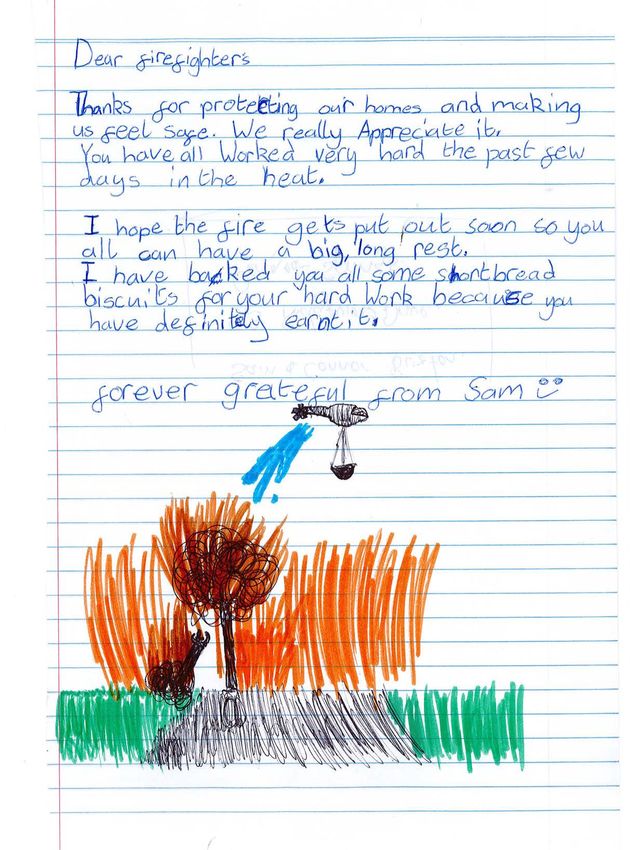 Dear firefighters
Thanks for protecting our homes and making
us feel safe. We really Appreciate it.
You have all Worked very hard the past few
days in the heat.
I hope the fire gets put out soon so you
all can have a big, long rest.
I have backed you all some shortbread
biscuits for your hard Work because you
have definitely earnt it.
forever grateful from Sam